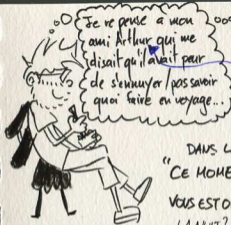 Je repense à mon
ami Arthur qui me
disait qu'il avait peur
de s'ennuyer/pas savoir
quoi faire en voyage...
DANS L
"CE MOME
VOUS EST O
LA NUIT?